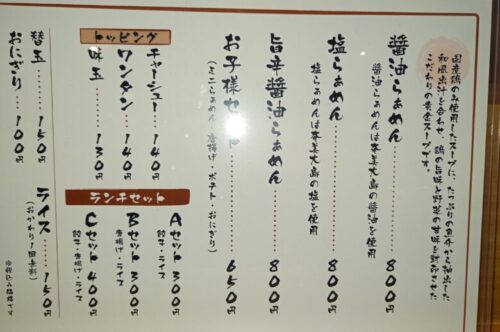 国産鶏のみ使用したスープに、たっぷりの魚介から抽出した
和風出汁を合わせ、鶏の旨味と野菜の甘味を野菜させた
こだわりの黄金スープです。
醤油らぁめん 800円
醤油らぁめんは奄美大島の醤油を使用
塩らぁめん 800円
塩らぁめんは奄美大島の塩を使用
旨辛醤油らぁめん 800円
お子様セット 650円
(ミニらぁめん・唐揚げ・ポテト・おにぎり)
トッピング
チャーシュー 140円
ワンタン 140円
味玉 130円
ランチセット
Aセット 300円
餃子・ライス
Bセット 300円
唐揚げ・ライス
Cセット 400円
餃子・唐揚げ・ライス
替玉 150円
おにぎり 100円
ライス 150円
(おかわり1回無料)